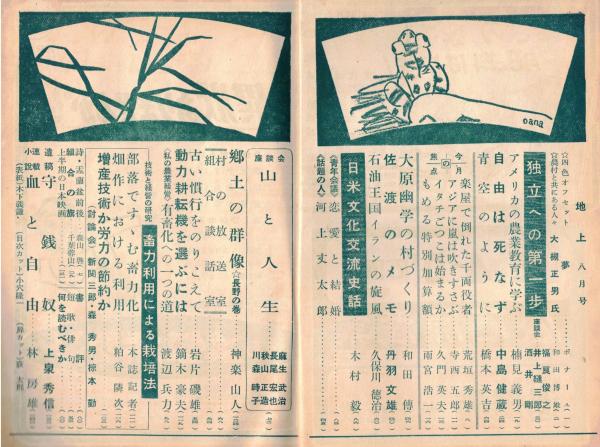 地上 八月号
☆四色オフセット 夢 ボナール
☆農村と共にある人々 大槻正男氏 和田博雄
独立への第一歩 座談会 福夏之 井上縫三郎 酒井剛
アメリカの農業教育に学ぶ 楠見義男
自由は死なず 中島健蔵
青空のように 橋本英吉
今月の焦点
楽屋で倒れた千両役者 荒垣秀雄
アジアに嵐は吹きすさぶ 寺西五郎
イタチごっこは始まるか 久門英夫
もめる特別加算額 雨宮浩一
大原幽学の村づくり 和田傳
佐渡のメモ 丹羽文雄
石油王国イランの旋風 久保川徳治
日米文化交流史話 木村毅
(青年会議)恋愛と結婚
(話題の人)河上丈太郎
oana
座談会 山と人生 麻生武治 長尾宏也 秋山時正 川森造子
郷土の群像 ☆長野の巻 神楽山人
村の放送室
組合談話室
古い慣行をのりこえて 岩片磯雄
動力耕耘機を選ぶには 鏑木豪夫
(私の農業経営)有畜化への一つの道 渡辺兵力
技術と経営の研究 畜力利用による栽培法
部落ですゝむ畜力化 本誌記者
畑作における利用 粕谷隣次
増産技術か労力の節約か
(討論会)新関三郎・森秀男・椋本勤
詩・盂蘭盆前後
組合の旗 千葉春山
上半期の日本映画
書評
短歌・俳句
何を読むべきか
遺稿 守銭奴 上泉秀信
連載小説 血と自由 林房雄
(表紙)木下義謙・(目次カット)小穴隆一